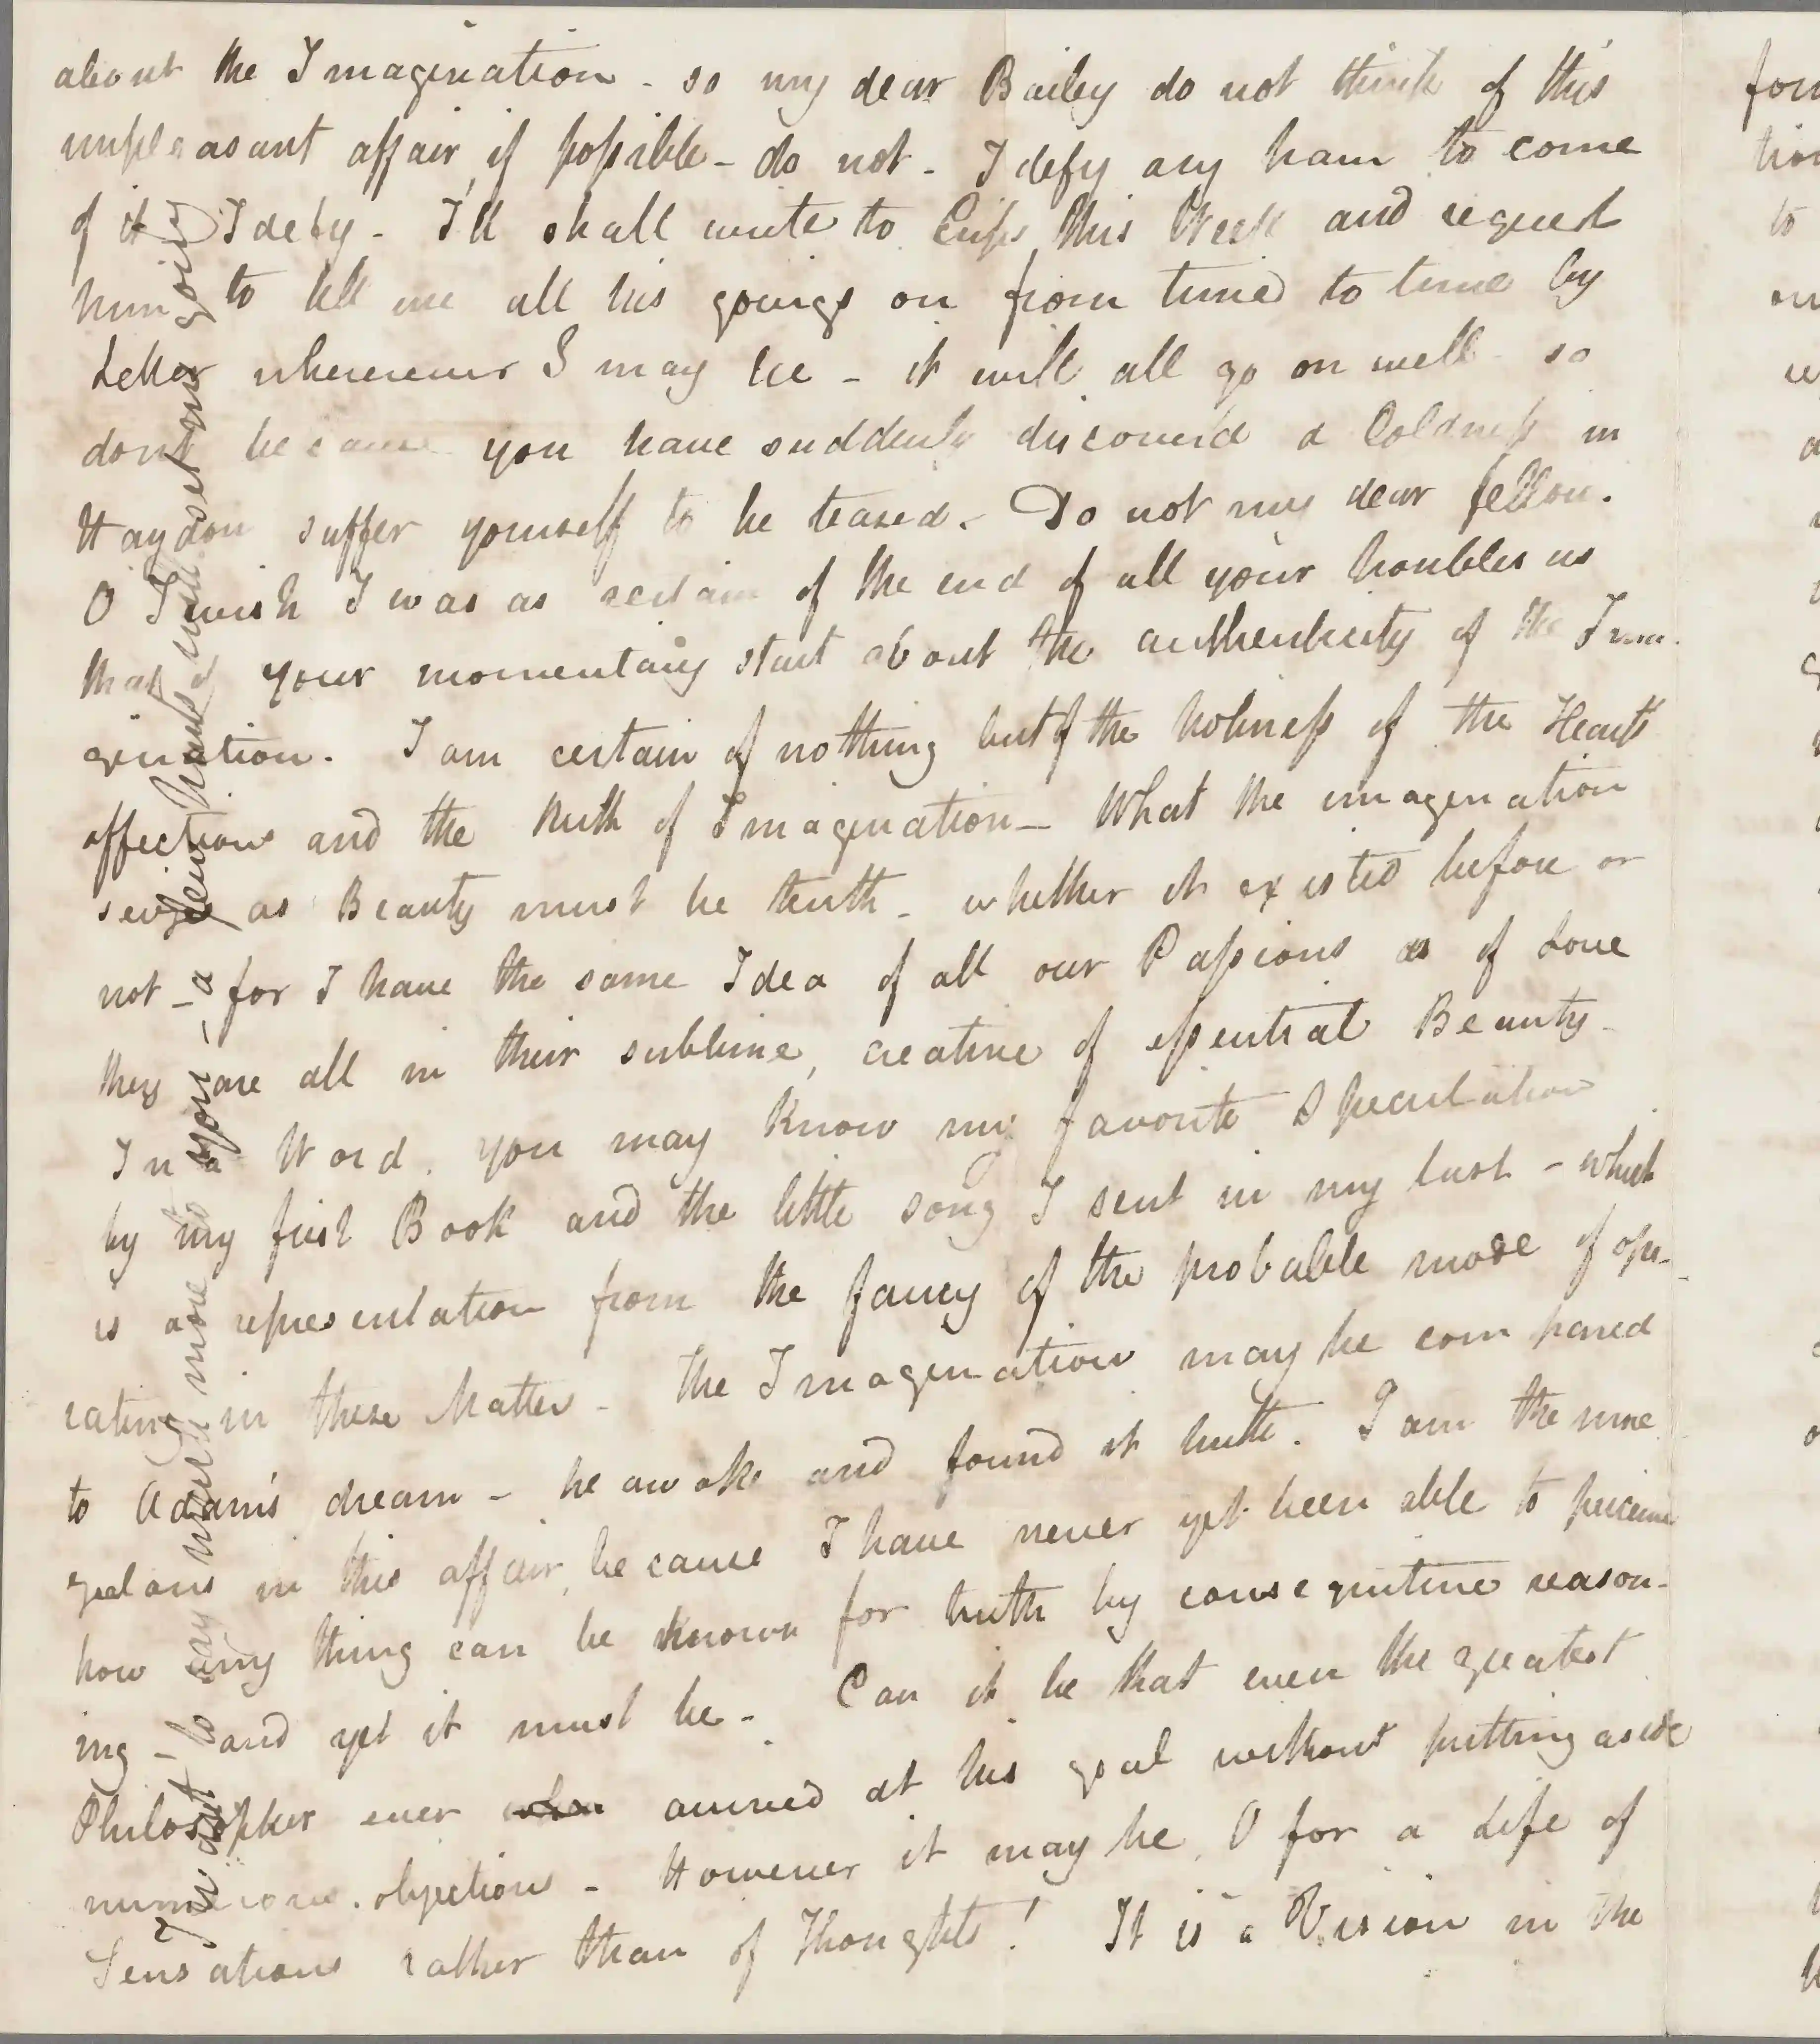 about the Imagination - so my dear Bailey do not think of this
unpleasant affair if possible - do not - I defy any ham to come
of it I defy - I'll shall write to Crips this Week and request
him to tell me all his goings on from time to time by
Letter whererever I may be - it will all go on well - so
dont because you have suddenly discover'd a Coldness in
Haydon suffer yourself to be teased. Do not my dear fellow.
O I wish I was as certain of the end of all your troubles as
that of your momentary start about the authenticity of the Ima-
gination. I am certain of nothing but of the holiness of the Heart's
affections and the truth of Imagination - What the imagination
seizes as Beauty must be truth - whether it existed before or
not - for I have the same Idea of all our Passions as of Love
they are all in their sublime, creative of essential Beauty -
In a Word, you may know my favorite Speculation
by my first Book and the little song I sent in my last - which
is a representation from the fancy of the probable mode of ope-
rating in these Matters - The Imagination may be compared
to Adam's dream - he awoke and found it truth. I am the more
zealous in this affair, because I have never yet been able to perceive
how any thing can be known for truth by consequitive reason-
ing - and yet it must be - Can it be that even the greatest
Philosopher ever when arrived at his goal without putting aside
numerous objections - However it may be, O for a Life of
Sensations rather than of Thoughts! It is a Vision in the
I want to say much more to you - a few hints will set me going
fou
tion
to